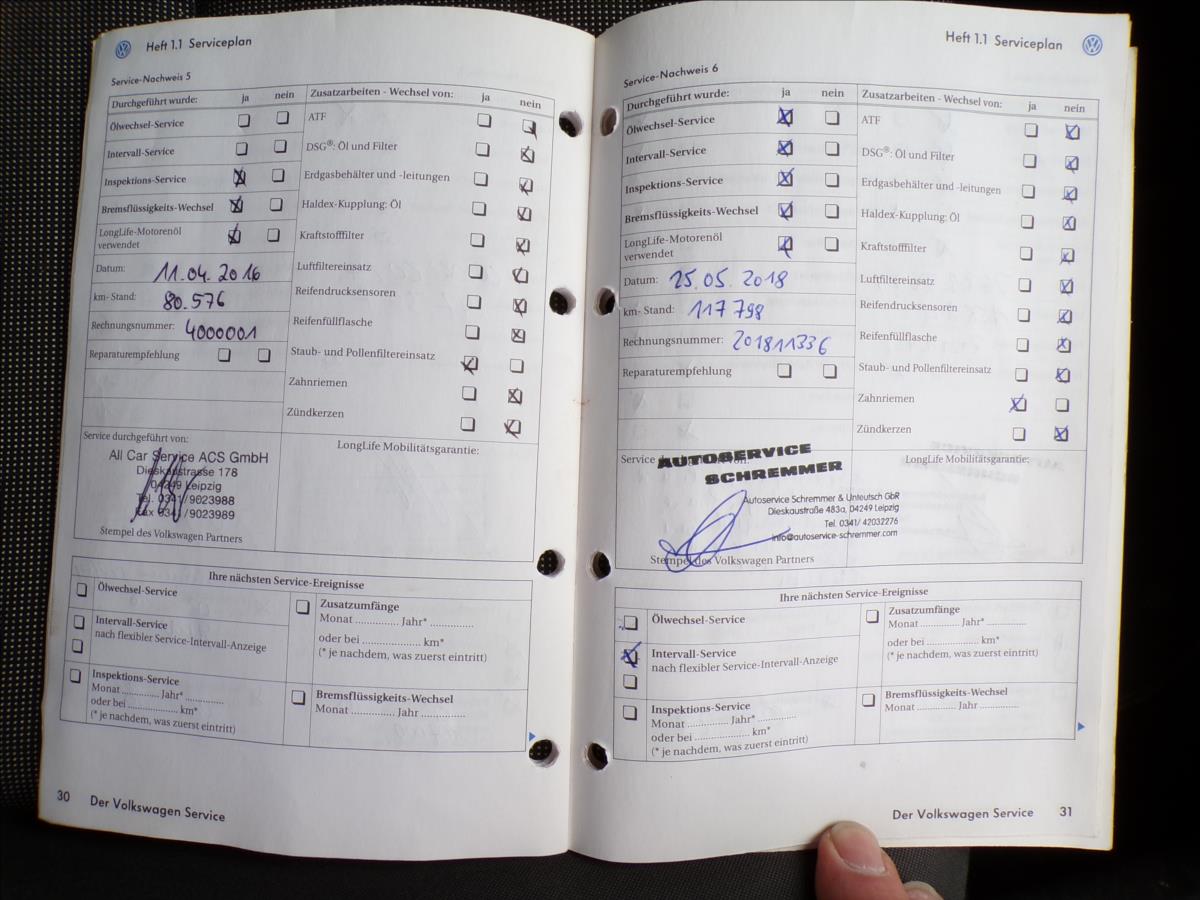 Heft 1.1 Serviceplan
Service-Nachweis 5
Durchgeführt wurde: ja nein
Ölwechsel-Service
Intervall-Service
Inspektions-Service
Bremsflüssigkeits-Wechsel
LongLife-Motorenöl
verwendet
Datum: 11.04.2016
km- Stand: 80.576
Rechnungsnummer: 4000001
Reparaturempfehlung
Zusatzarbeiten - Wechsel von: ja nein
ATF
DSG®: Öl und Filter
Erdgasbehälter und -leitungen
Haldex-Kupplung: Öl
Kraftstofffilter
Luftfiltereinsatz
Reifendrucksensoren
Reifenfüllflasche
Staub- und Pollenfiltereinsatz
Zahnriemen
Zündkerzen
Service durchgeführt von:
All Car Service ACS GmbH
Dieskaustrasse 178
04249 Leipzig
Tel. 0341/9023988
Fax 0341/9023989
Stempel des Volkswagen Partners
LongLife Mobilitätsgarantie:
Ihre nächsten Service-Ereignisse
Ölwechsel-Service
Intervall-Service
nach flexibler Service-Intervall-Anzeige
Inspektions-Service
Monat ............. Jahr* .............
oder bei .................... km*
(* je nachdem, was zuerst eintritt)
Zusatzumfänge
Monat ............. Jahr* .............
oder bei .................... km*
(* je nachdem, was zuerst eintritt)
Bremsflüssigkeits-Wechsel
Monat ............. Jahr .............
30 Der Volkswagen Service
Heft 1.1 Serviceplan
Service-Nachweis 6
Durchgeführt wurde: ja nein
Ölwechsel-Service
Intervall-Service
Inspektions-Service
Bremsflüssigkeits-Wechsel
LongLife-Motorenöl
verwendet
Datum: 25.05.2018
km- Stand: 117798
Rechnungsnummer: 201811336
Reparaturempfehlung
Zusatzarbeiten - Wechsel von: ja nein
ATF
DSG®: Öl und Filter
Erdgasbehälter und -leitungen
Haldex-Kupplung: Öl
Kraftstofffilter
Luftfiltereinsatz
Reifendrucksensoren
Reifenfüllflasche
Staub- und Pollenfiltereinsatz
Zahnriemen
Zündkerzen
Service
AUTOSERVICE
SCHREMMER
Autoservice Schremmer & Unteutsch GbR
Dieskaustraße 483a, 04249 Leipzig
Tel. 0341/ 42032276
info@autoservice-schremmer.com
Stempel des Volkswagen Partners
LongLife Mobilitätsgarantie:
Ihre nächsten Service-Ereignisse
Ölwechsel-Service
Intervall-Service
nach flexibler Service-Intervall-Anzeige
Inspektions-Service
Monat ............. Jahr* .............
oder bei .................... km*
(* je nachdem, was zuerst eintritt)
Zusatzumfänge
Monat ............. Jahr* .............
oder bei .................... km*
(* je nachdem, was zuerst eintritt)
Bremsflüssigkeits-Wechsel
Monat ............. Jahr .............
Der Volkswagen Service 31